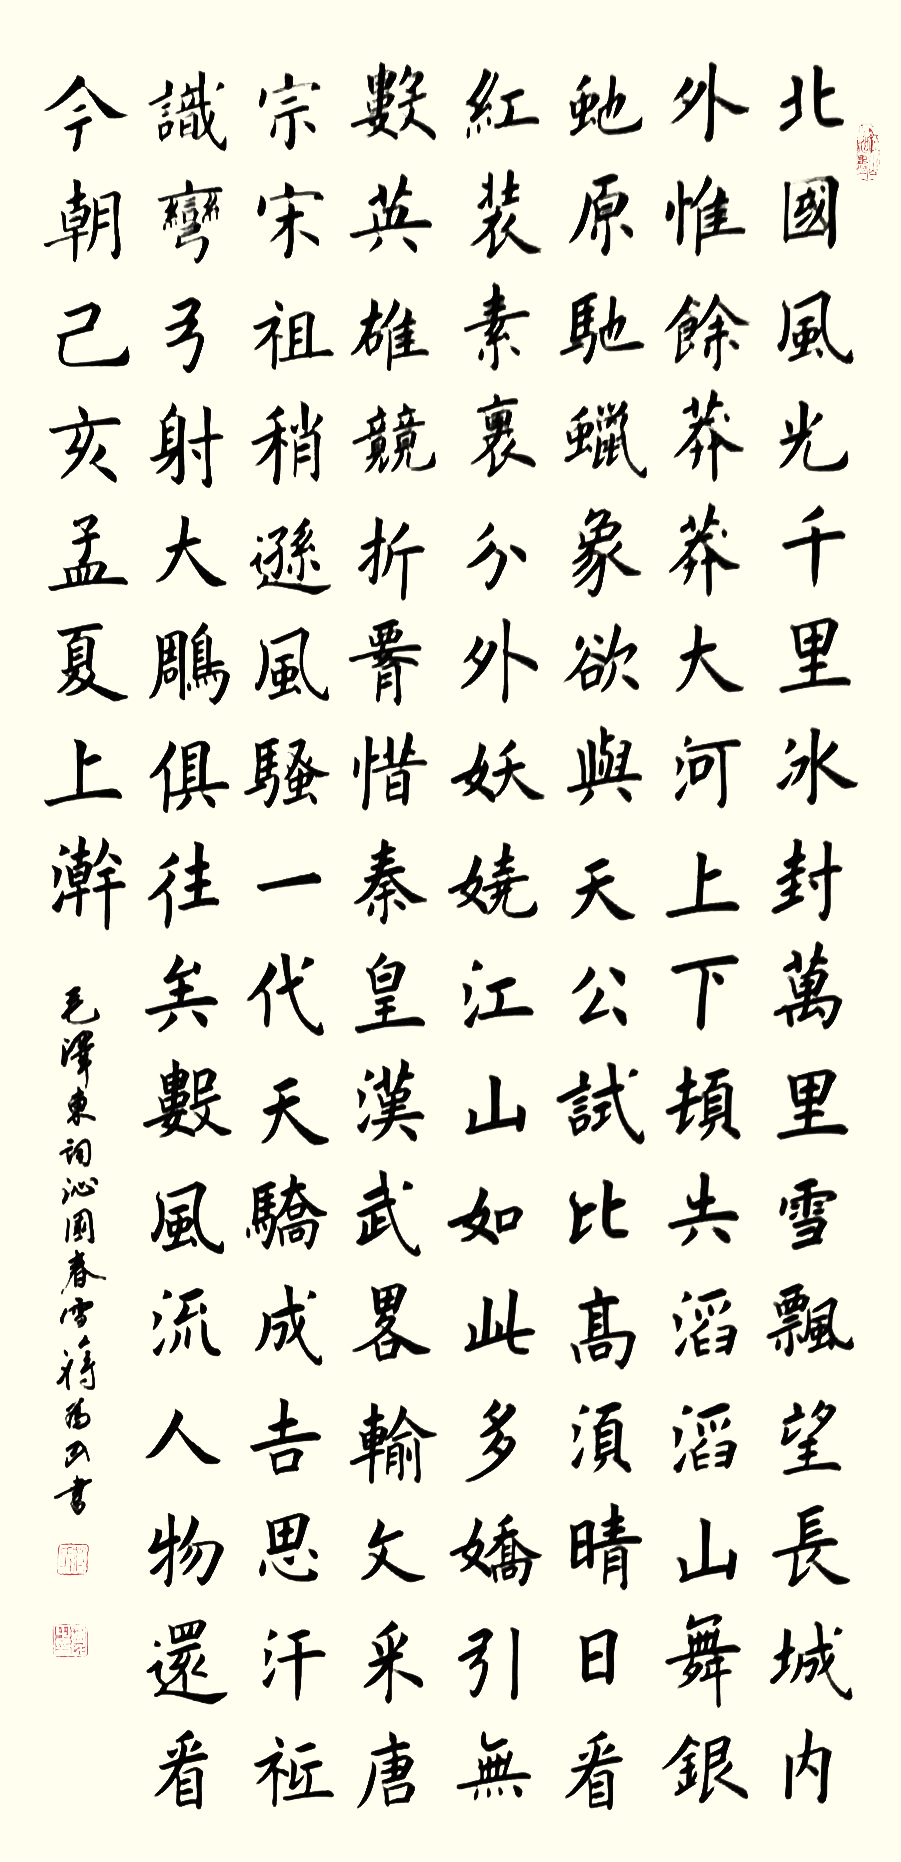 北國風光千里冰封萬里雪飄望長城内
外惟餘莽莽大河上下頓失滔滔山舞銀
虵原馳蠟象欲與天公試比髙須晴日看
紅装素裹分外妖嬈江山如此多嬌引無
數英雄競折腰惜秦皇漢武畧輸文采唐
宗宋祖稍遜風騷一代天驕成吉思汗祗
識彎弓射大鵰俱往矣數風流人物還看
今朝己亥孟夏上澣
毛澤東詞沁園春雪蔣為民書